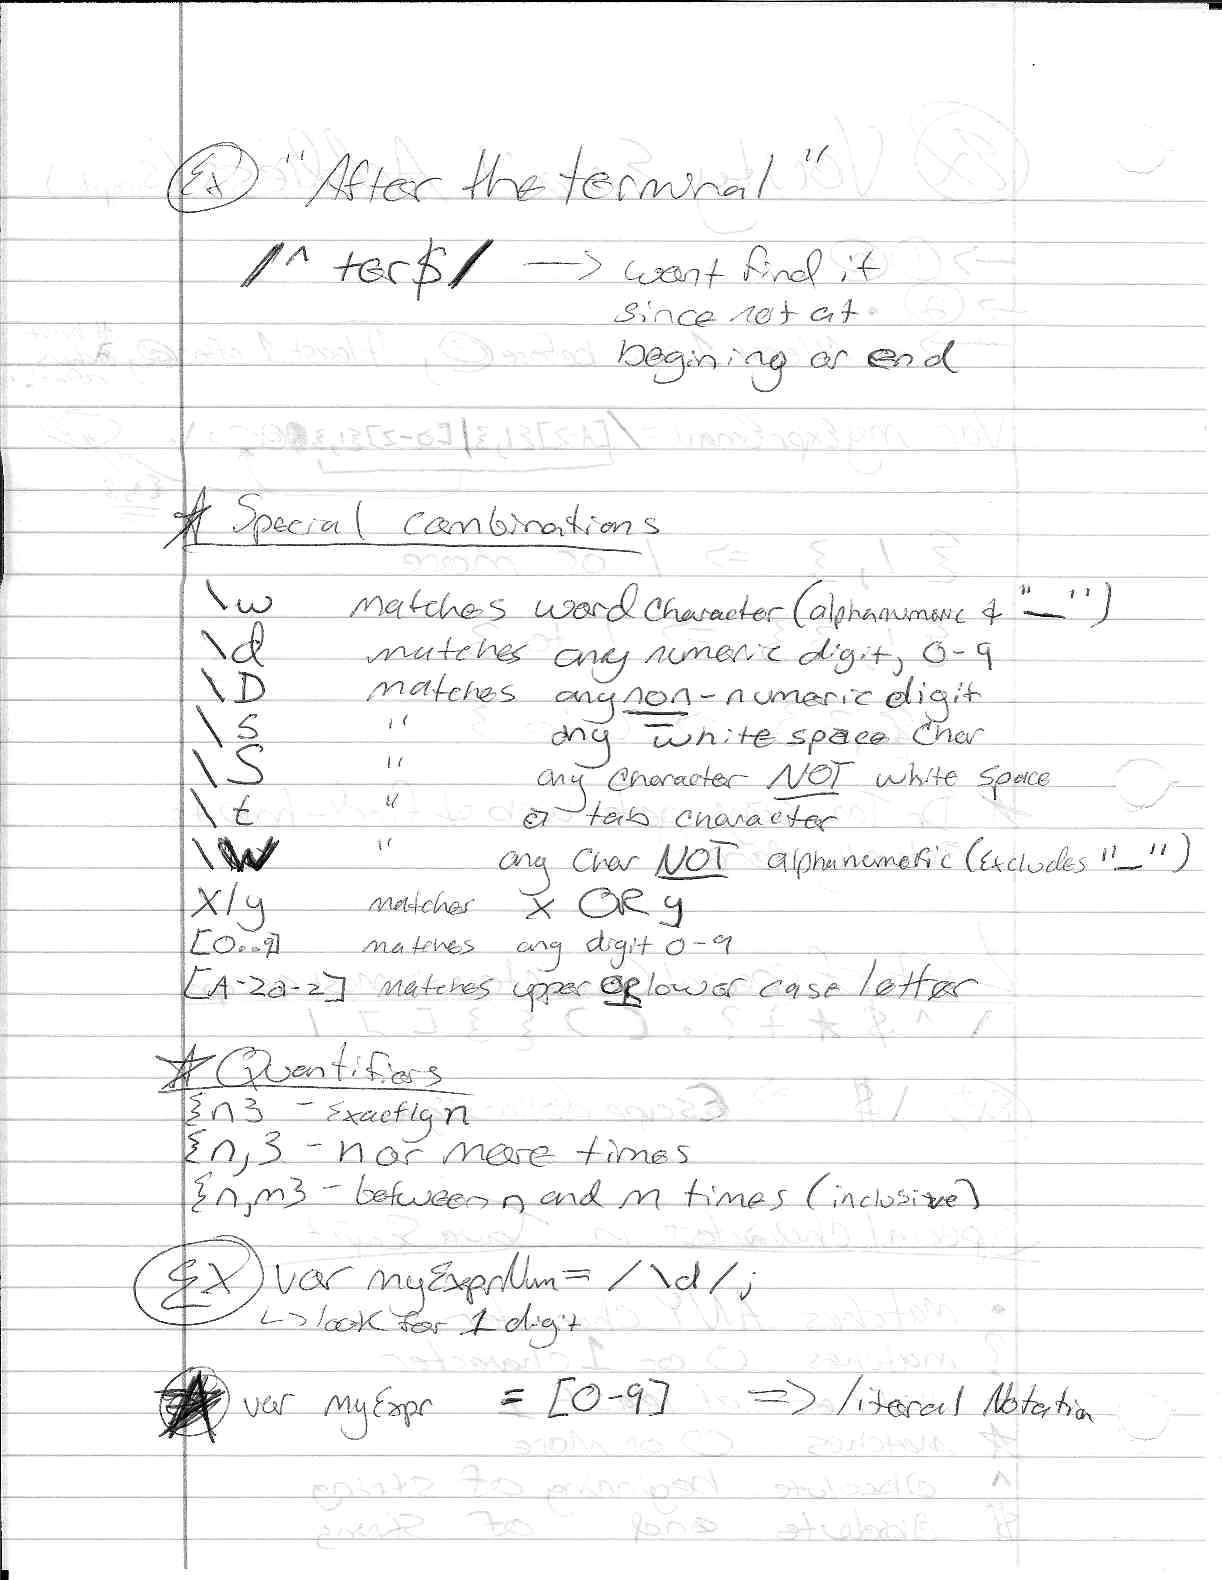 Ex "After the terminal"
/^ ter$/ —> wont find it
since not at
begining or end
* Special combinations
\w matches word character (alphanumeric & "_")
\d matches any numeric digit, 0-9
\D matches any non-numeric digit
\s " any white space char
\S " any character NOT white space
\t " a tab character
\W " any char NOT alphanumeric (Excludes "_")
X|y matches x OR y
[0..9] matches any digit 0-9
[A-Za-z] matches upper OR lower case letter
* Quantifiers
{n} - Exactly n
{n,} - n or more times
{n,m} - between n and m times (inclusive)
Ex var myExprNum = /\d/;
↳> look for 1 digit
* var myExpr = [0-9] => literal Notation